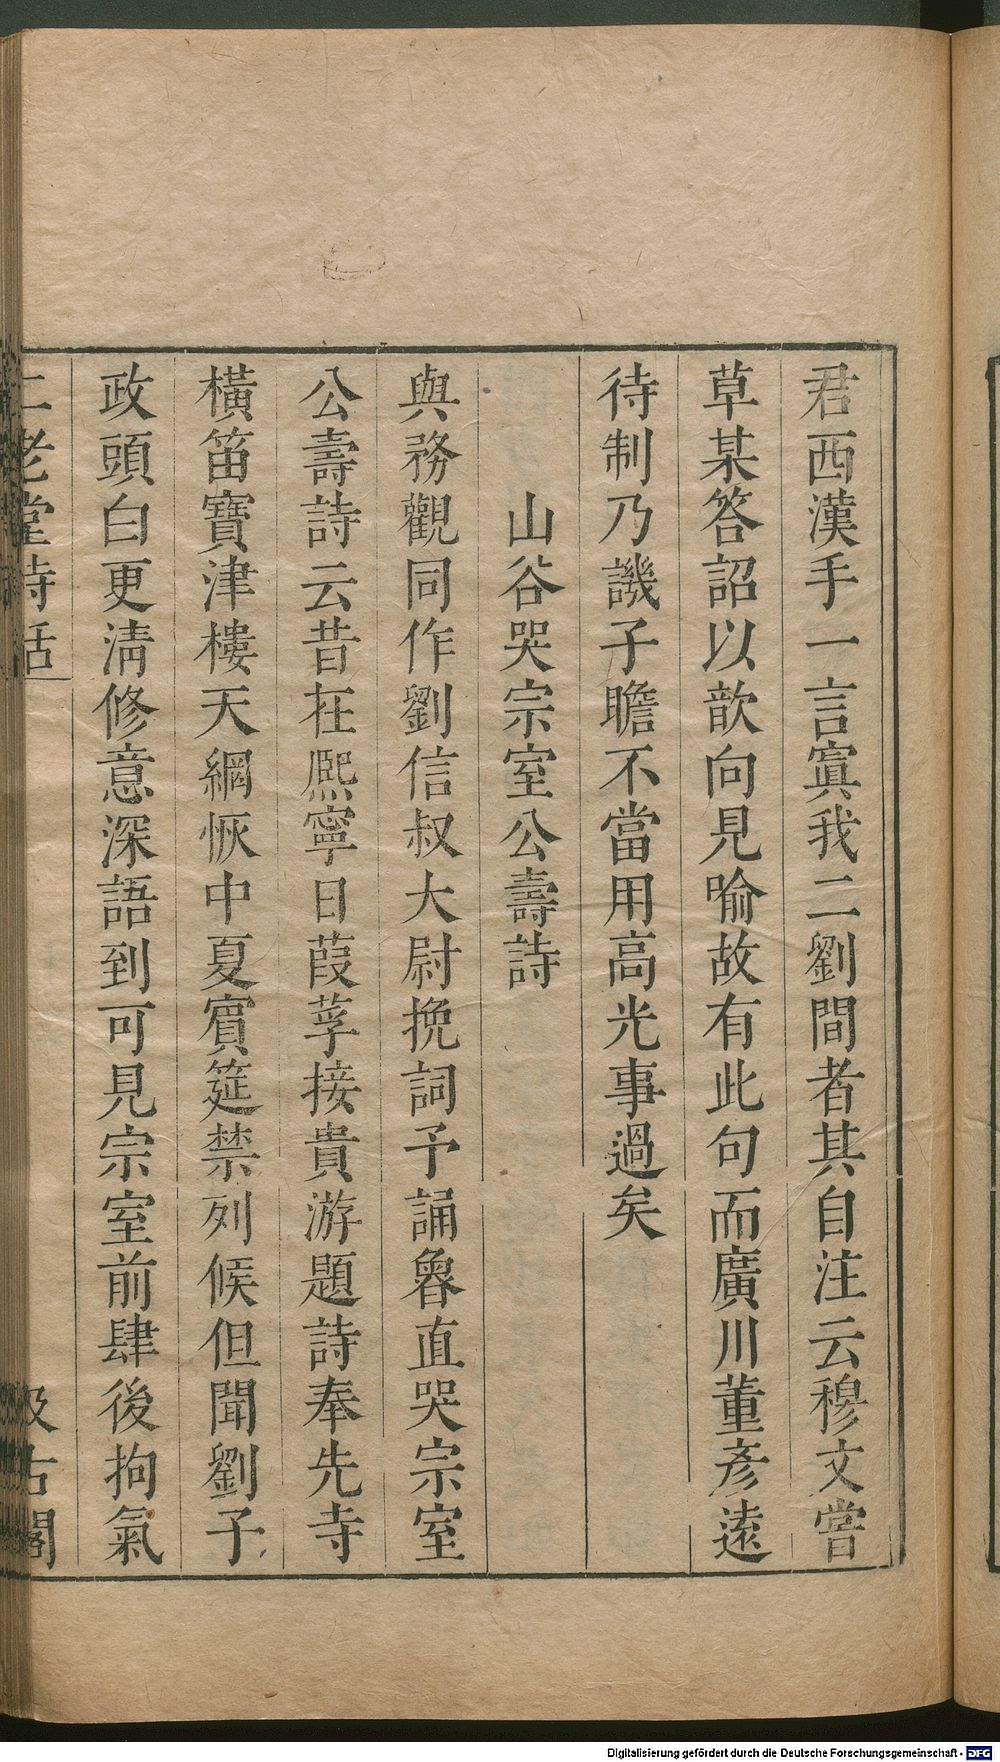 君西漢手一言寘我二劉間者其自注云穆文嘗
草某答詔以歆向見喻故有此句而廣川董彦遠
待制乃譏子瞻不當用高光事過矣
山谷哭宗室公壽詩
與務觀同作劉信叔大尉挽詞予誦魯直哭宗室
公壽詩云昔在熙寧日葭莩接貴游題詩奉先寺
橫笛寶津樓天網恢中夏賓筵禁列侯但聞劉子
政頭白更清修意深語到可見宗室前肆後拘氣
二老堂詩話
汲古閣
Digitalisierung gefördert durch die Deutsche Forschungsgemeinschaft - DFG